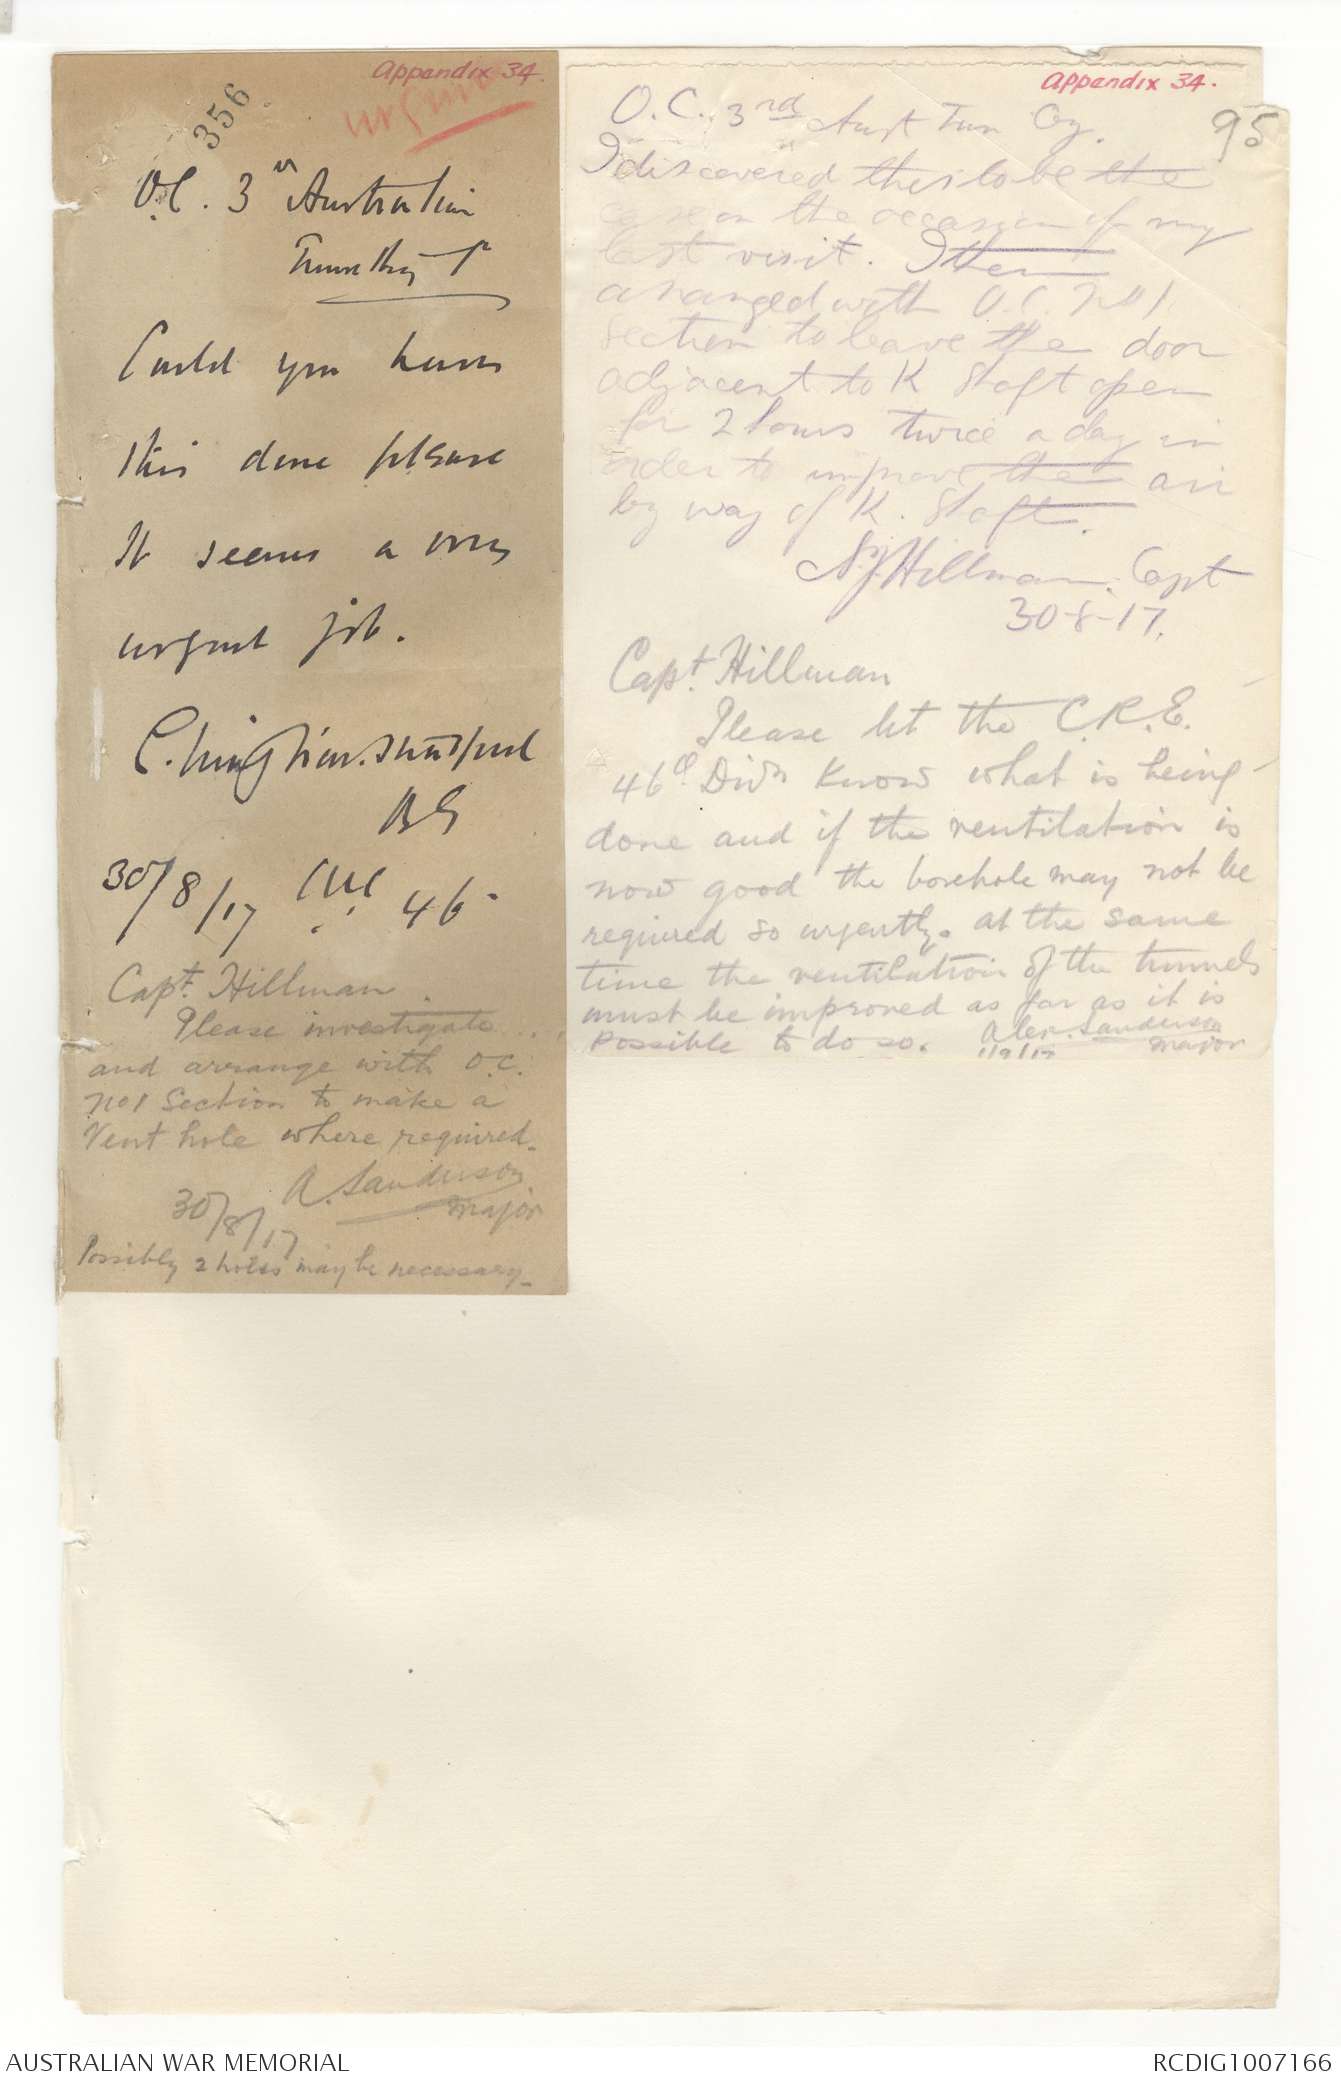 Appendix 34.
urgent
356
O.C. 3rd Australian
Could you have
this done please
It seems a very
urgent job.
BG
30/8/17 46
Capt. Hillman.
Please investigate
and arrange with O.C.
No 1 Section to make a
Vent hole where required.
A. Sanderson
Major
30/8/17
Possibly 2 holes may be necessary.
Appendix 34.
95
O.C. 3rd Aust Tun Coy.
I discovered this to be the
case on the occasion of my
last visit. I then
arranged with O.C. No 1
section to leave the door
adjacent to K Shaft open
for 2 hours twice a day in
order to improve the air
by way of K. Shaft.
Hillman. Capt
30-8-17.
Capt. Hillman
Please let the C.R.E.
46th Divn know what is being
done and if the ventilation is
now good the borehole may not be
required so urgently. at the same
time the ventilation of the tunnels
must be improved as far as it is
possible to do so. Alex. Sanderson
1/9/17 Major
AUSTRALIAN WAR MEMORIAL
RCDIG1007166